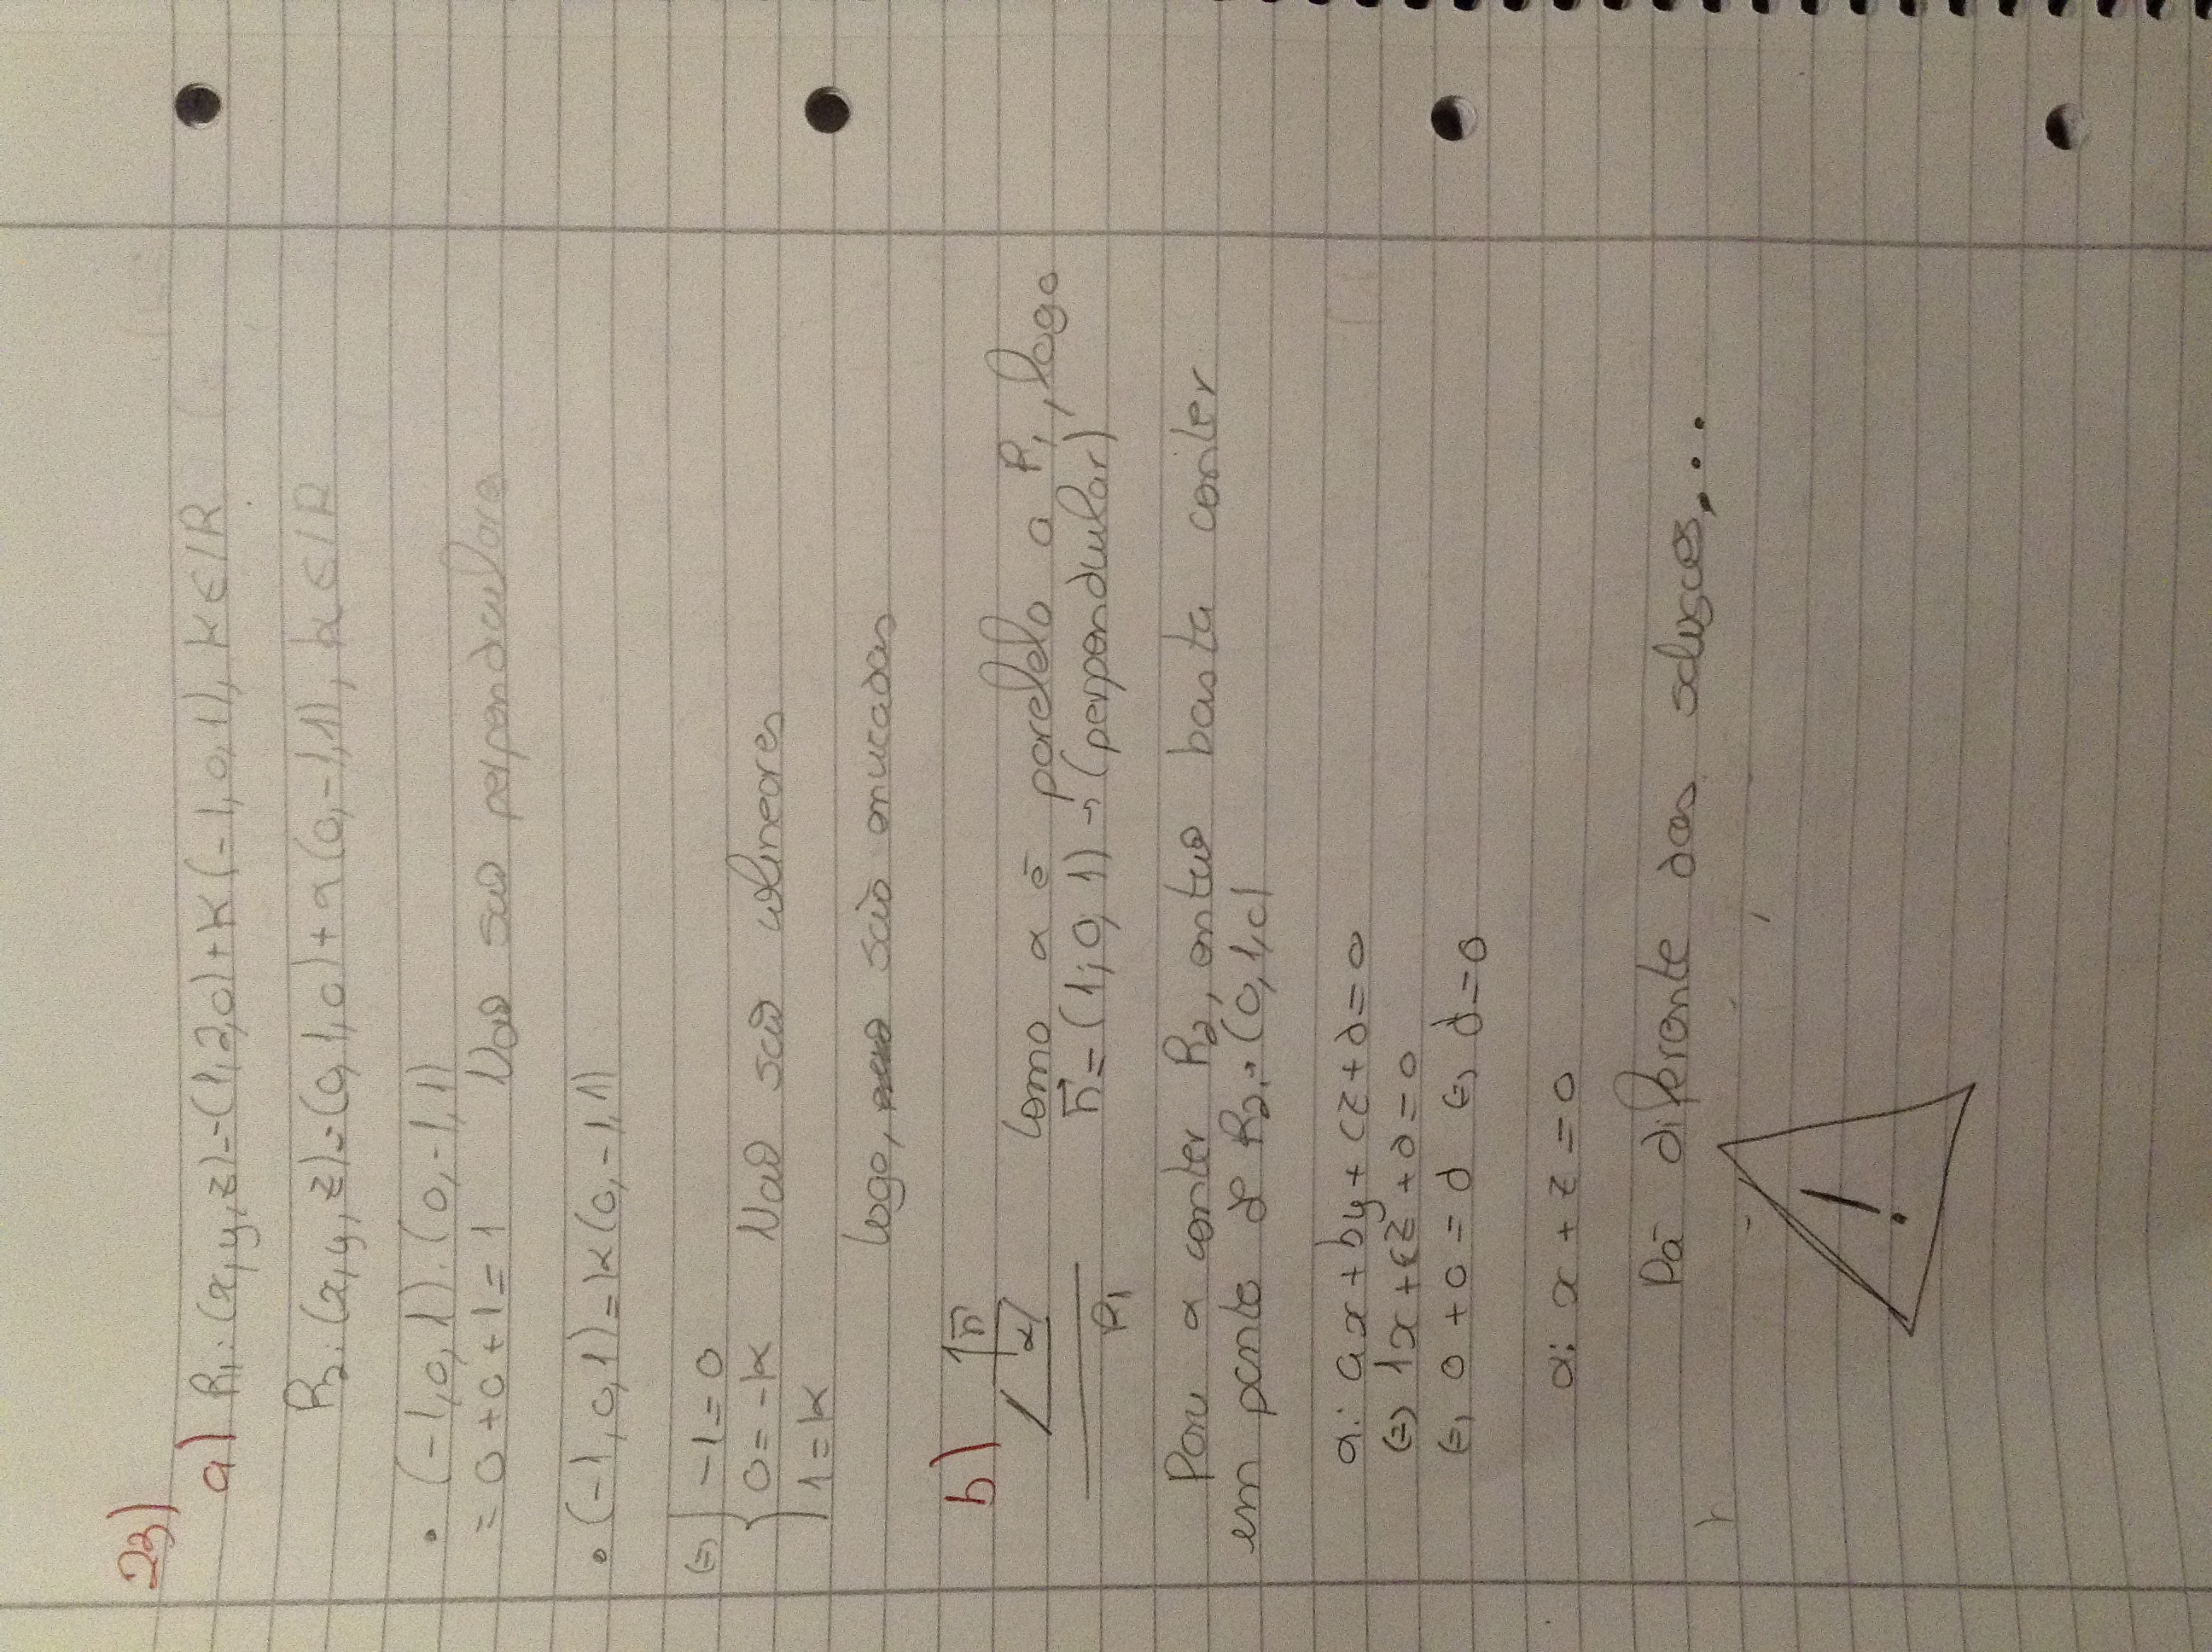 23)
a) R1: (x,y,z)=(1,2,0)+K(-1,0,1), K∈IR
R2: (x,y,z)=(0,1,0)+α(0,-1,1), K∈IR
• (-1,0,1).(0,-1,1)
=0+0+1=1 Não são perpendiculares
• (-1,0,1)=K(0,-1,1)
(=) { -1=0
0=-K Não são colineares
1=K
logo, são enviesadas
b) n
α
R1
Como α é paralelo a R1, logo
n=(1;0,1)→(perpendicular)
Para α conter R2, então basta conter
em ponto de R2.→(0,1,0)
α: ax+by+cz+d=0
(=) 1x+cz+d=0
(=) 0+0=d (=) d=0
α: x+z=0
Dá diferente das soluções,...
!